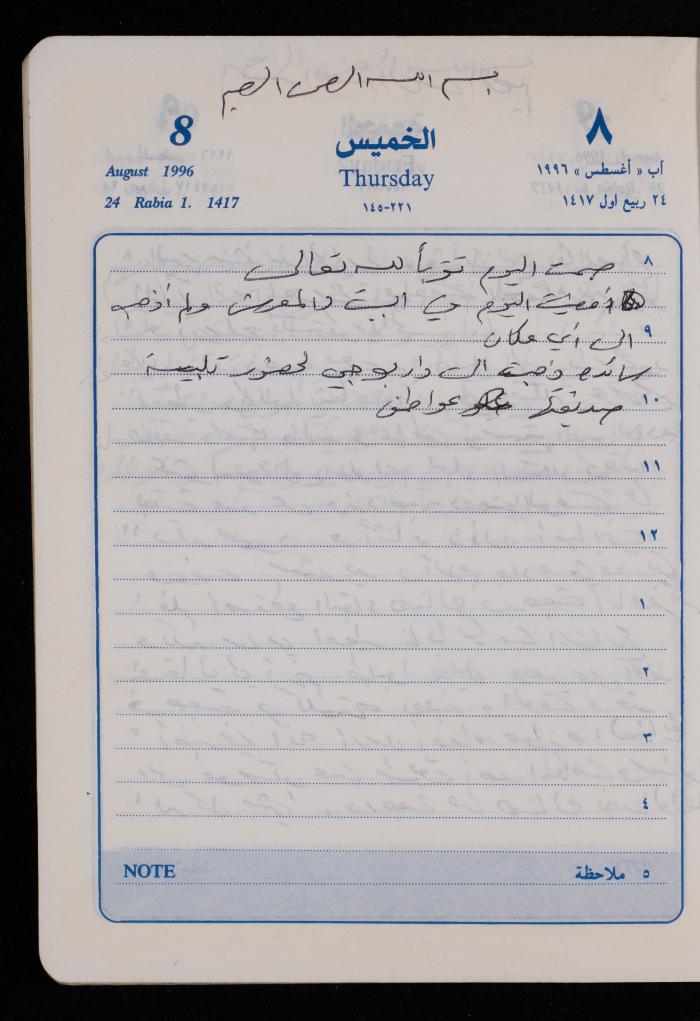 بسم الله الرحمن الرحيم
8
الخميس
٨
August 1996
Thursday
آب « أغسطس » ١٩٩٦
24 Rabia 1. 1417
٢٢١-١٤٥
٢٤ ربيع اول ١٤١٧
٨
صمت اليوم تقربأ لله تعالى
أمضيت اليوم في البيت والمعرض ولم أذهب
٩
الى أي مكان
سائده ذهبت الى دار بوجي لحضور تلبيسة
١٠
صديقتها عواطف
١١
١٢
١
٢
٣
٤
NOTE
٥ ملاحظة